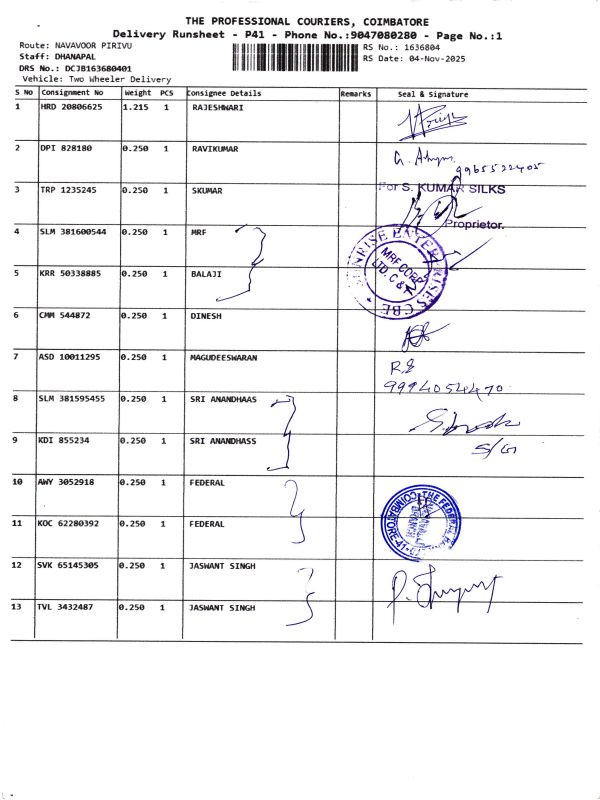 THE PROFESSIONAL COURIERS, COIMBATORE
Delivery Runsheet - P41 - Phone No.:9047080280 - Page No.:1
Route: NAVAVOOR PIRIVU
RS No.: 1636804
Staff: DHANAPAL
RS Date: 04-Nov-2025
DRS No.: DCJB163680401
Vehicle: Two Wheeler Delivery
S No Consignment No Weight PCS Consignee Details Remarks Seal & Signature
1 HRD 20806625 1.215 1 RAJESHWARI
2 DPI 828180 0.250 1 RAVIKUMAR
9965522405
3 TRP 1235245 0.250 1 SKUMAR
For S. KUMAR SILKS
Proprietor.
4 SLM 381600544 0.250 1 MRF
SUNRISE ENTERPRISES CBE
MRF CORP
LTD. C & F
5 KRR 50338885 0.250 1 BALAJI
6 CMM 544872 0.250 1 DINESH
7 ASD 10011295 0.250 1 MAGUDEESWARAN
9994054470
8 SLM 381595455 0.250 1 SRI ANANDHAAS
9 KDI 855234 0.250 1 SRI ANANDHASS
10 AWY 3052918 0.250 1 FEDERAL
THE FEDERAL
COIMBATORE-41
BRANCH
11 KOC 62280392 0.250 1 FEDERAL
12 SVK 65145305 0.250 1 JASWANT SINGH
13 TVL 3432487 0.250 1 JASWANT SINGH